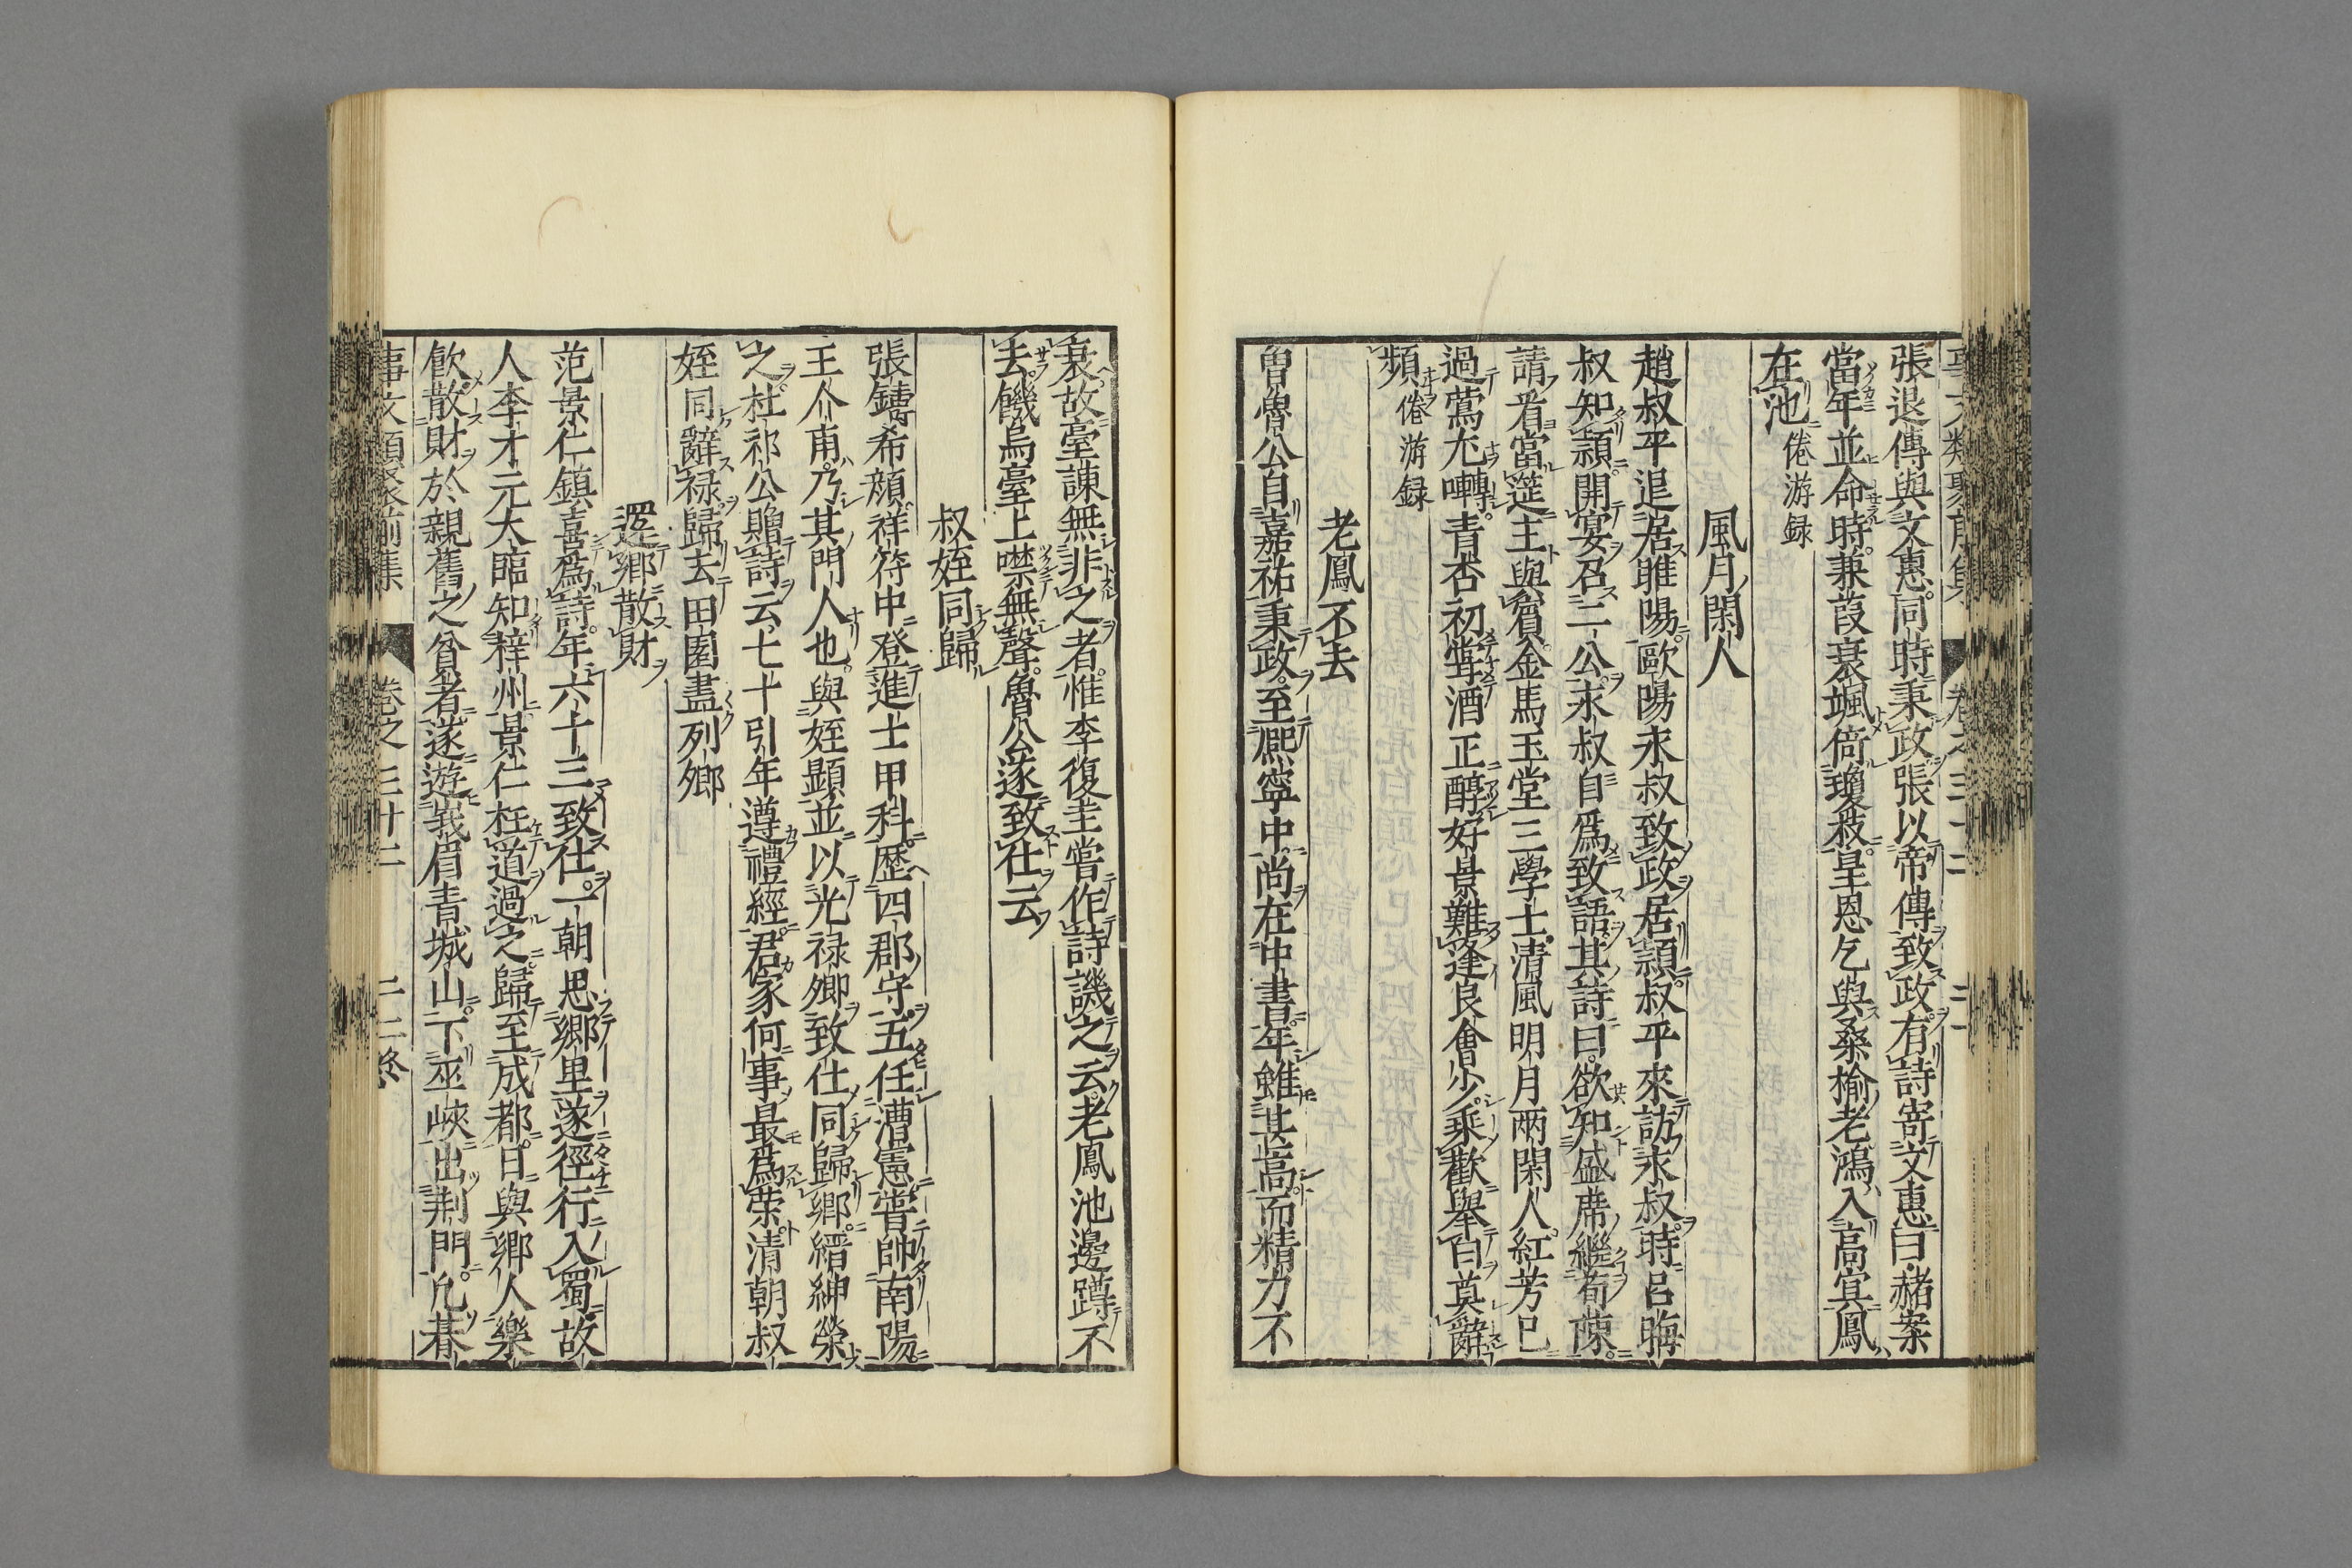 張退傳與文惠同時秉政張以帝傳致政有詩寄文惠曰赭案
當年並命時兼葭衰颯倚瓊枝皇恩乞與桑榆老鴻入高冥鳳
在池倦游録
風月閑人
趙叔平退居睢陽歐陽永叔致政居頴叔平來訪永叔時呂晦
叔知頴開宴召二公永叔自爲致語其詩曰欲知盛席繼荀陳
請看當筵主與賓金馬玉堂三學士清風明月兩閑人紅芳已
過鶯尤囀青杏初甞酒正醇好景難逢良會少乘歡舉白莫辭
頻倦游録
老鳳不去
曾魯公自嘉祐秉政至熙寧中尚在中書年雖甚高而精力不
衰故臺諫無非之者惟李復圭嘗作詩譏之云老鳳池邊蹲不
去饑烏臺上噤無聲魯公遂致仕云
叔姪同歸
張鑄希顔祥符中登進士甲科歷四郡守五任漕憲嘗帥南陽
王介甫乃其門人也與姪顯並以光禄卿致仕同歸鄉縉紳榮
之杜祁公贈詩云七十引年遵禮經君家何事最爲榮清朝叔
姪同辭禄歸去田園盡列卿
還鄉散財
范景仁鎮喜爲詩年六十三致仕一朝思鄉里遂徑行入蜀故
人李才元大臨知梓州景仁枉道過之歸至成都日與鄉人樂
飲散財於親舊之貧者遂遊峩眉青城山下巫峽出荆門凡朞
事文類聚前集 卷之三十二 二二終